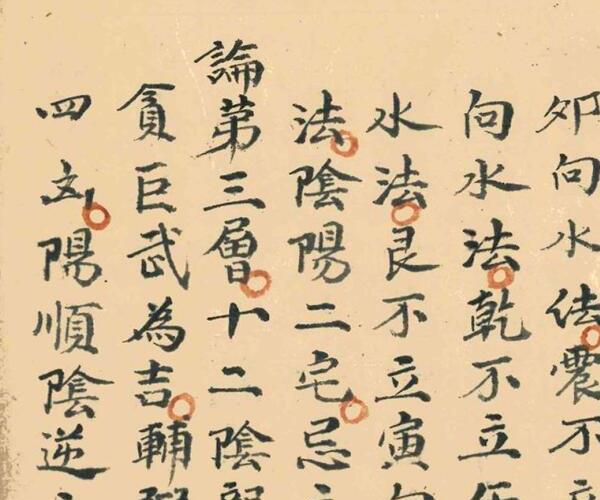 卯向水法震不
向水法乾不立
水法艮不立寅
法陰陽二宅忌
論第三層十二陰
貪巨武為吉輔
四位陽順陰逆